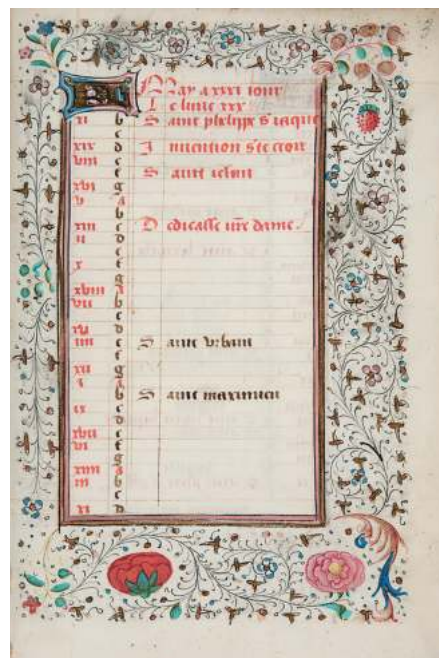 3
May a xxxi iour
Le lune xxx
xi b Saint phelippe s' iaque
c
xix d Inuention s'te croix
viii e
f Saint iehan
xvi g
v a
b
xiii c Dedicasse nre dame.
ii d
e
x f
g
xviii a
vii b
c
xv d
iiii e Saint vrbain
f
xii g
i a
b Saint maximien
ix c
d
xvii e
vi f
g
xiiii a
iii b
c
xi d